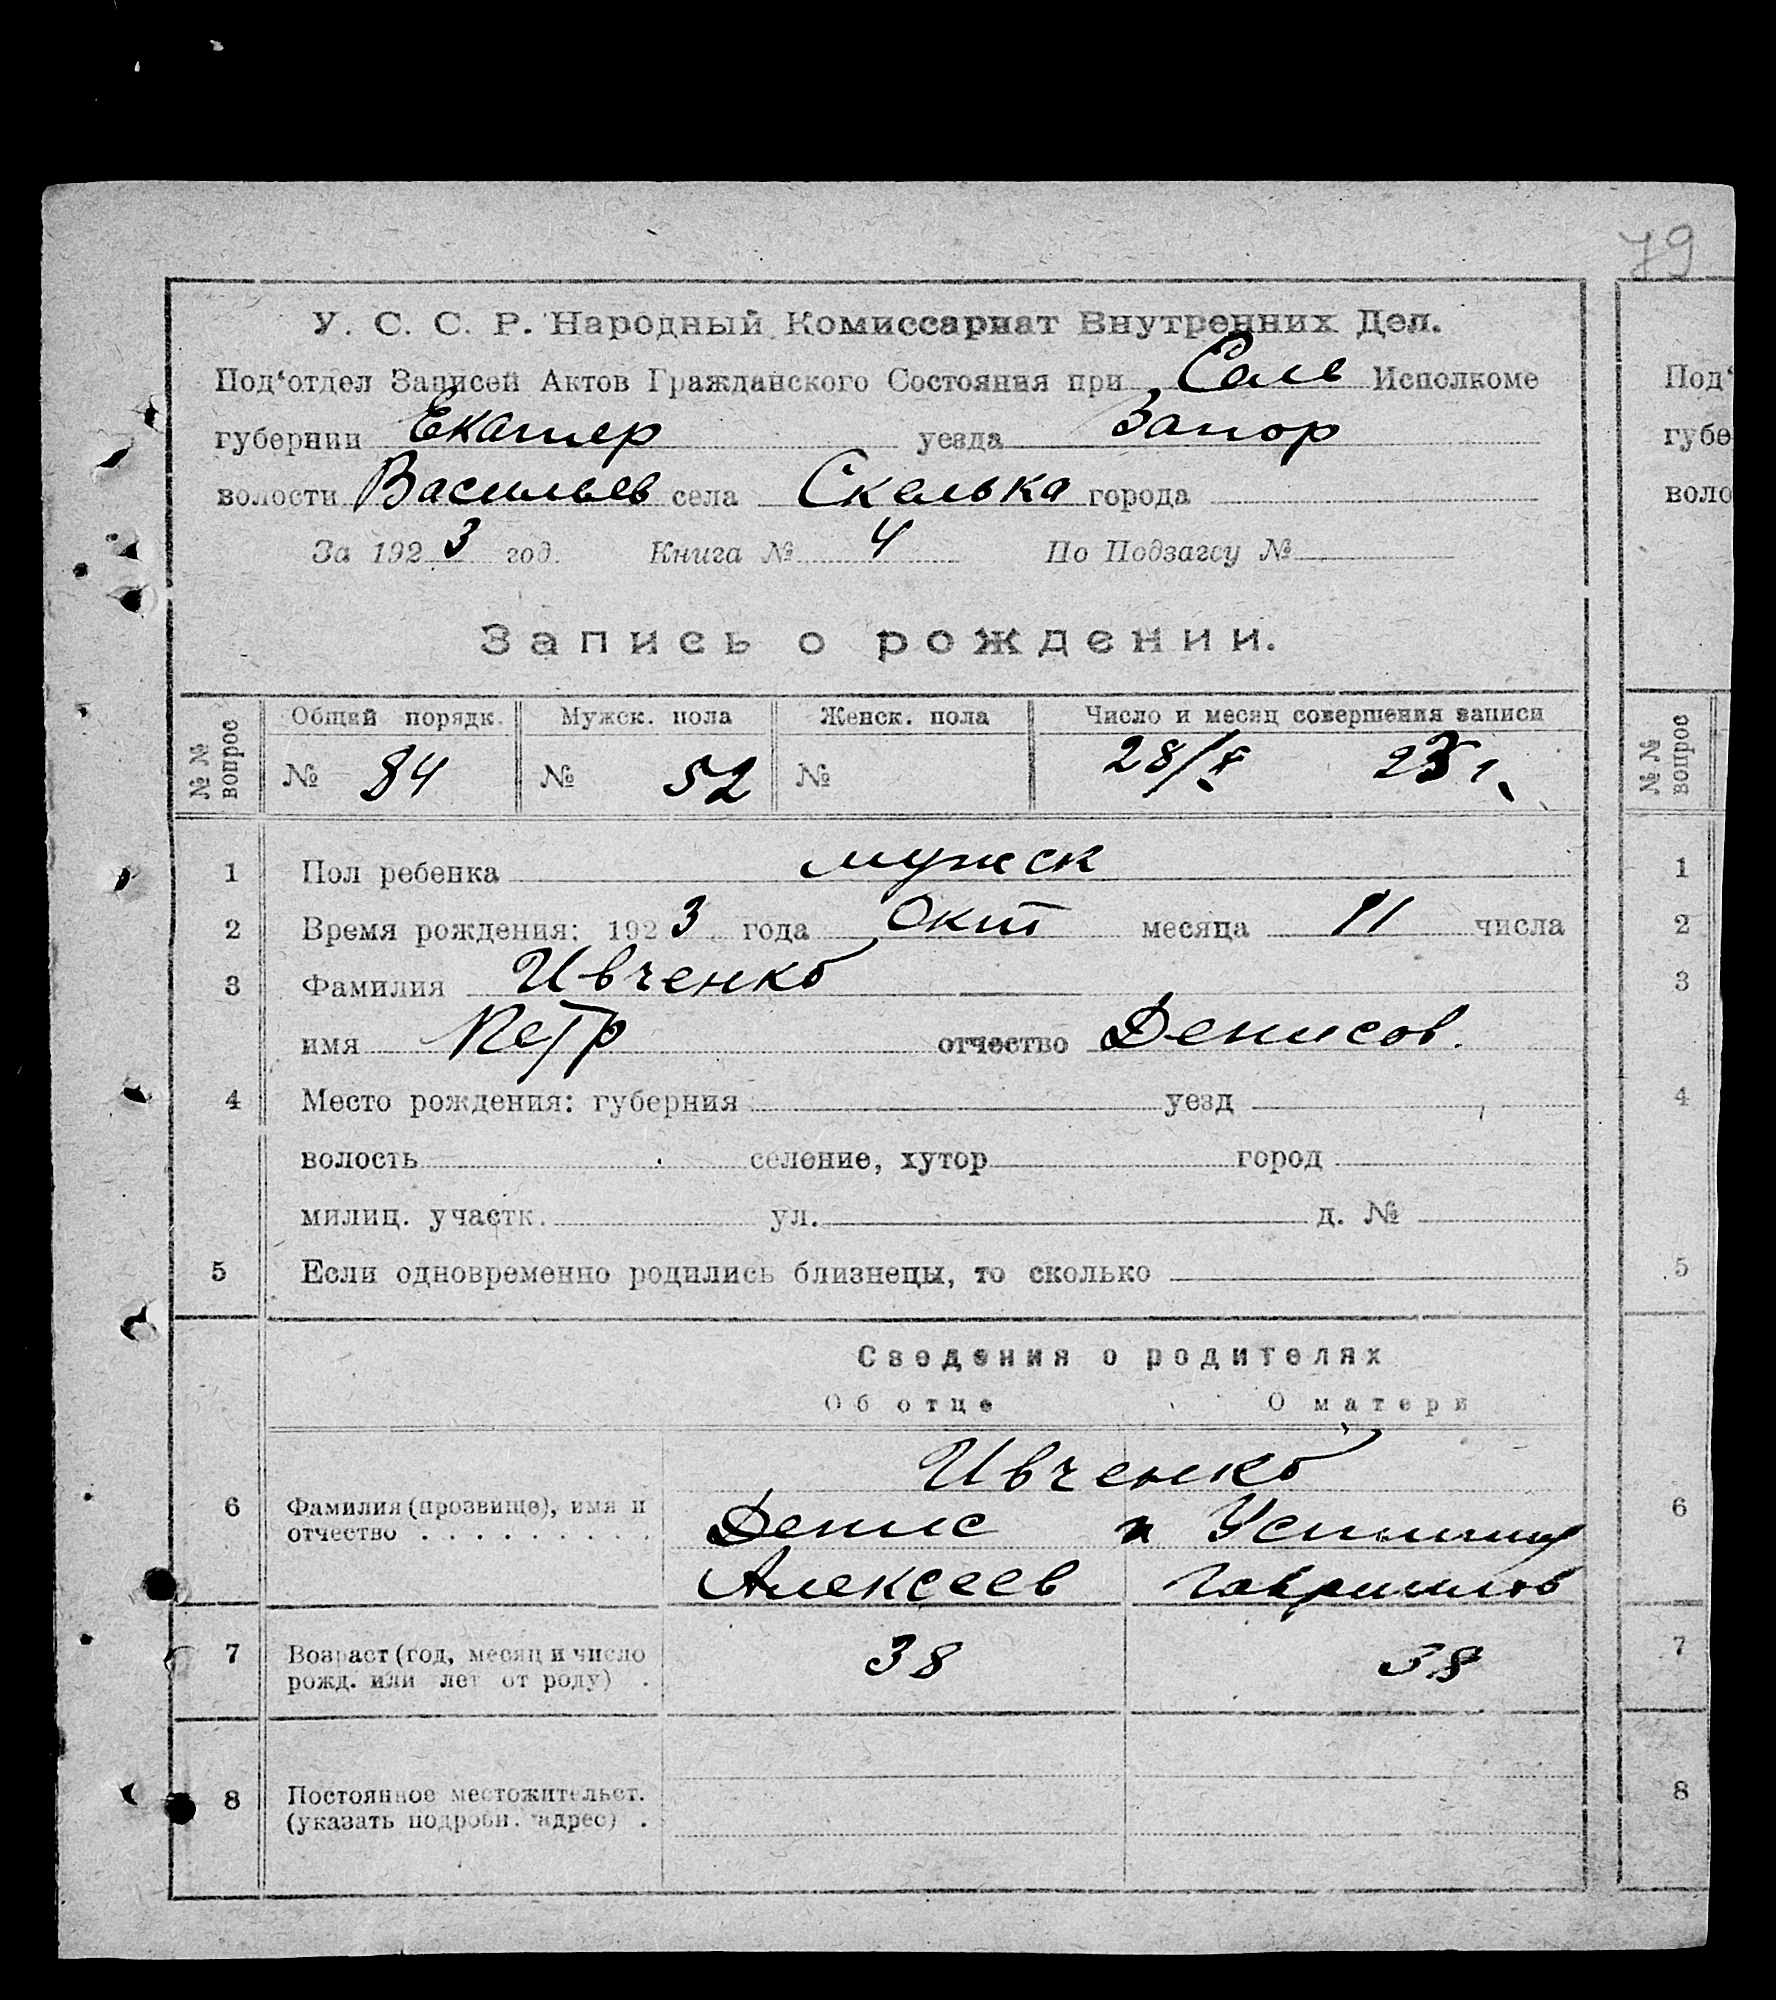 79
У. С. С. Р. Народный Комиссариат Внутренних Дел.
Под‘отдел Записей Актов Гражданского Состояния при Сель Исполкоме
губернии Екатер уезда Запор
волости Васильев села Скелька города
За 1923 год. Книга № 4 По Подзагсу №
Запись о рождении.
№№ вопрос Общий порядк. Мужск. пола Женск. пола Число и месяц совершения записи
№ 84 № 52 № 28/X 23 г.
1 Пол ребенка мужск
2 Время рождения: 1923 года Окт месяца 11 числа
3 Фамилия Ивченко
имя Петр отчество Денисов.
4 Место рождения: губерния уезд
волость селение, хутор город
милиц. участк. ул. д. №
5 Если одновременно родились близнецы, то сколько
Сведения о родителях
Об отце О матери
Ивченко
6 Фамилия (прозвище), имя и
отчество . . . . . . . . . .
Денис и Устиния
Алексеев Гаврилов
7 Возраст (год, месяц и число
рожд. или лет от роду) .
38 38
8 Постоянное местожительст.
(указать подробн. адрес) .
Под‘
губе
воло
№№ вопрос
1
2
3
4
5
6
7
8